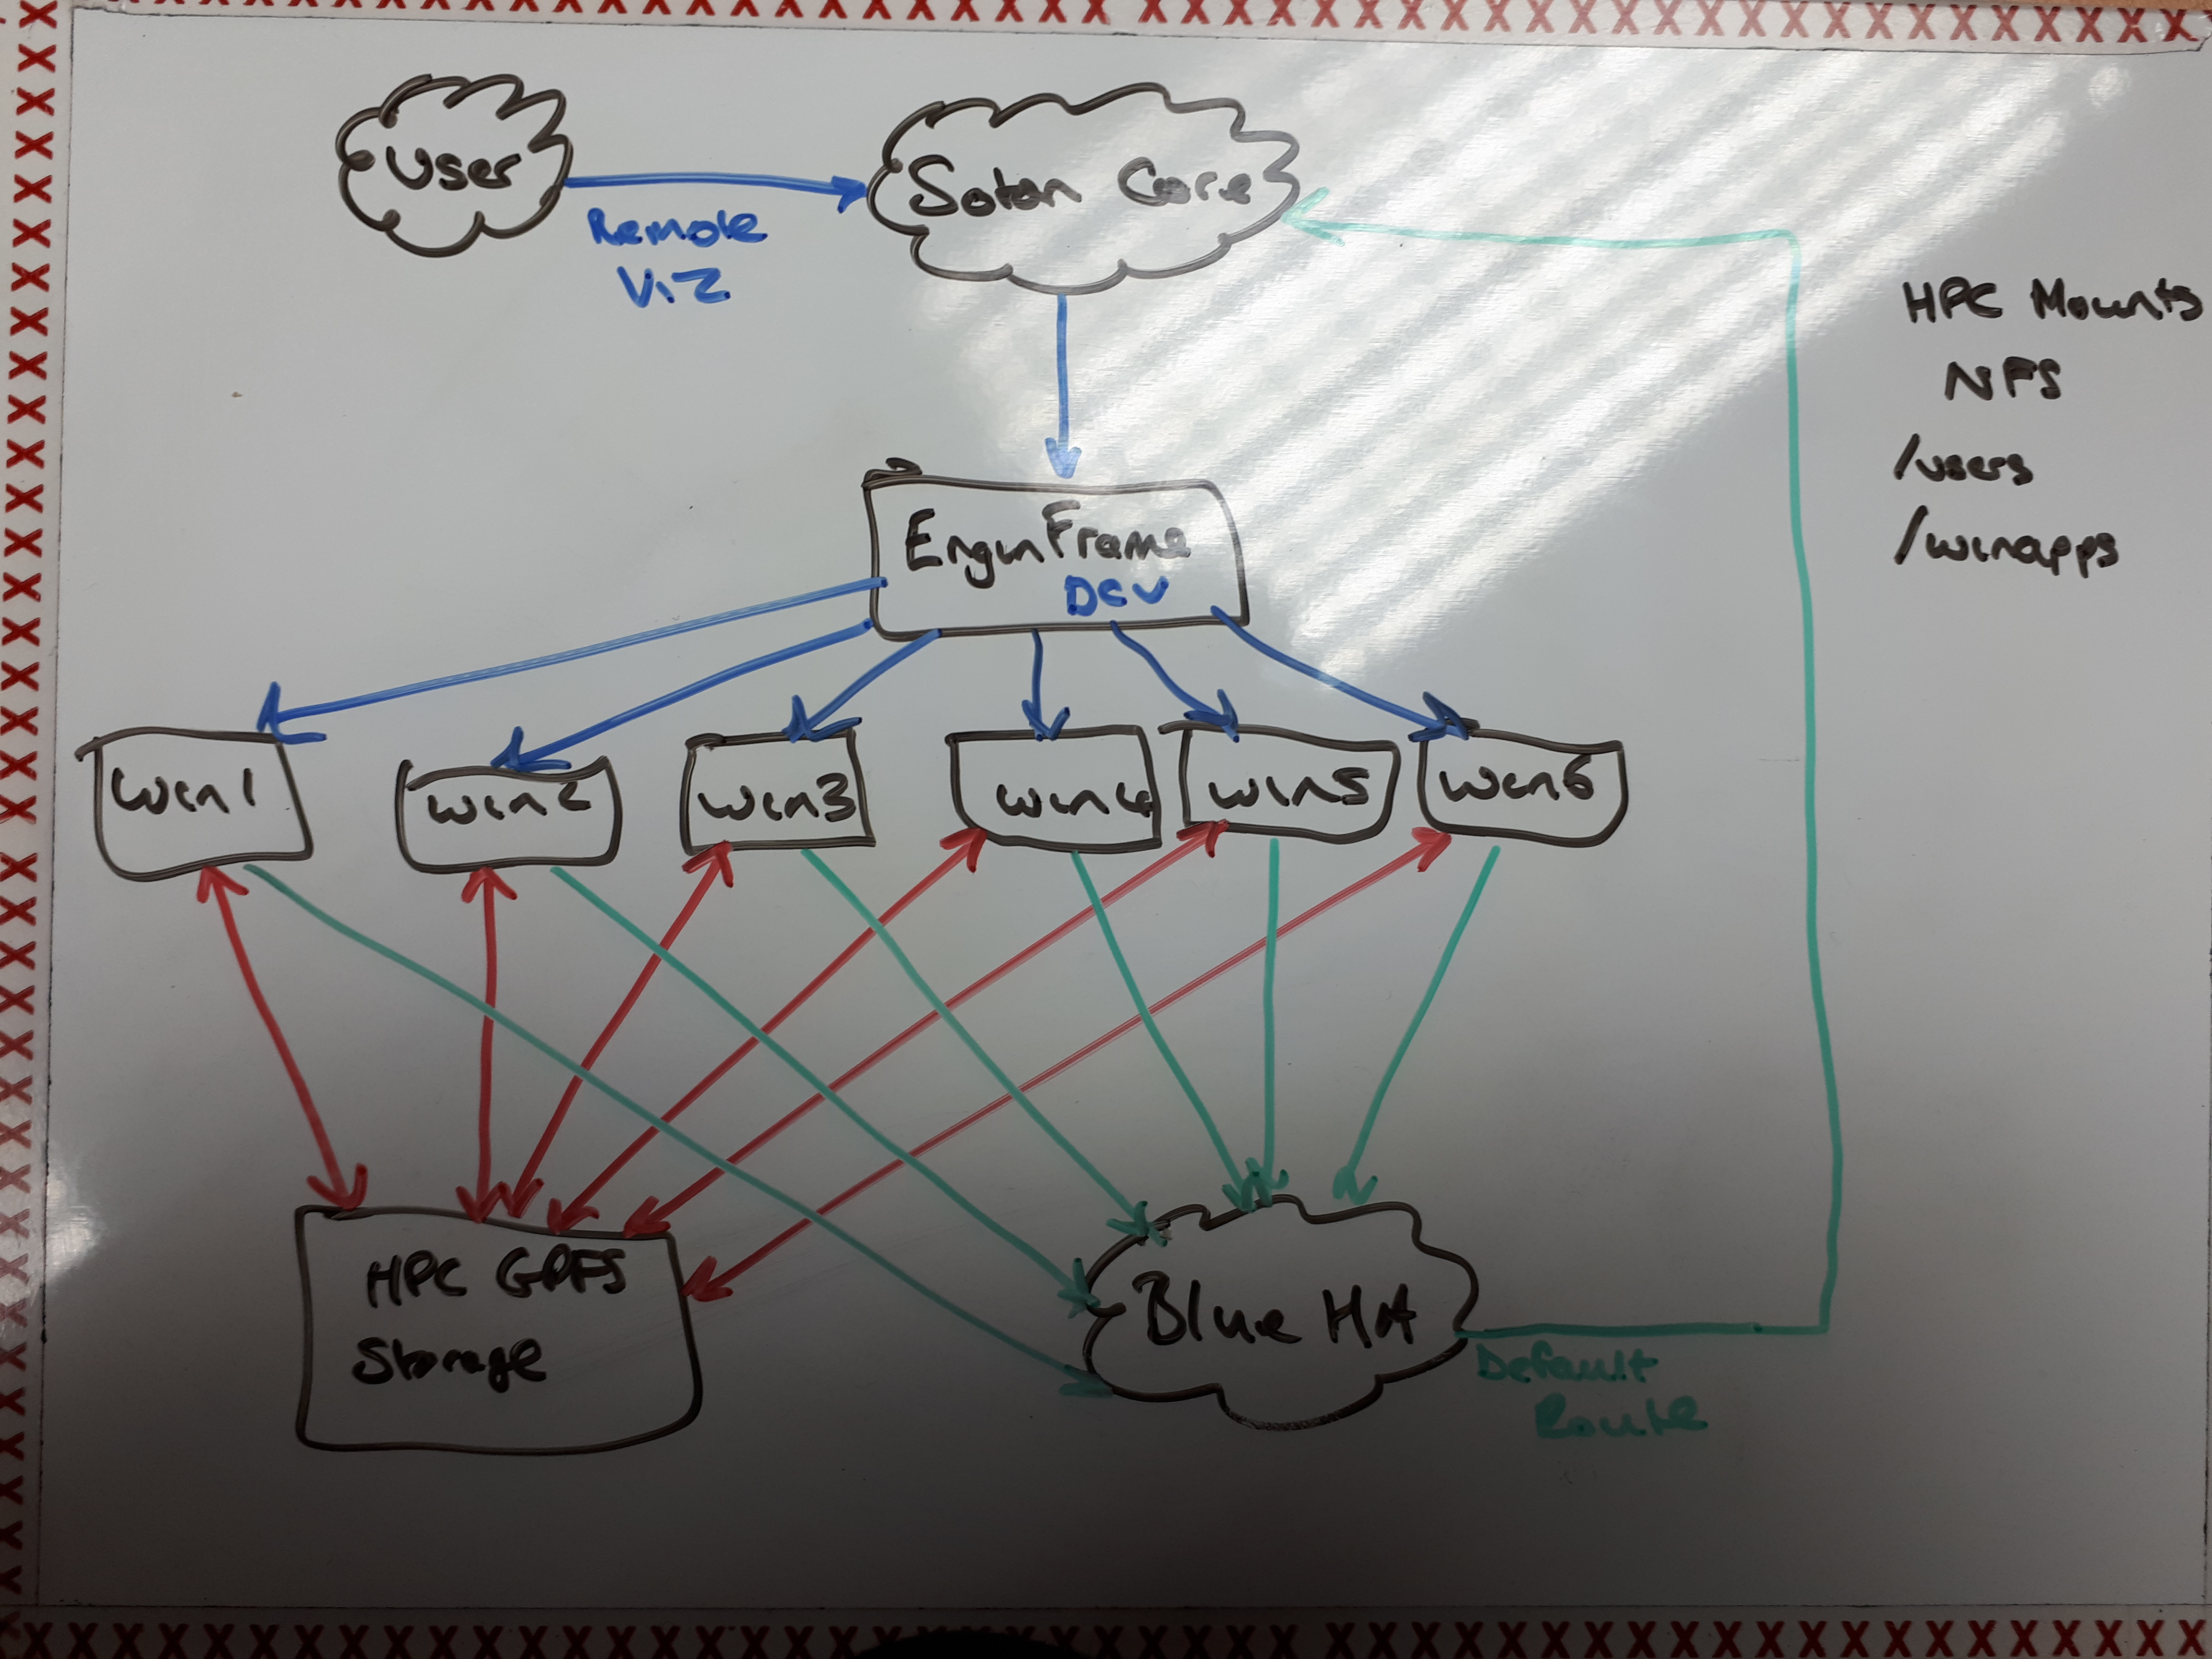 User
Soton Core
Remote
Viz
HPC Mounts
NFS
/users
/winapps
EnginFrame
DCV
Win1
Win2
Win3
Win4
Win5
Win6
HPC GPFS
Storage
Blue HA
Default
Route